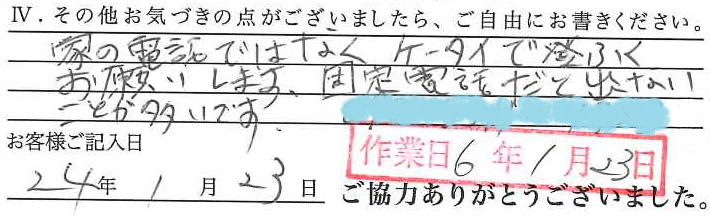 Ⅳ.その他お気づきの点がございましたら、ご自由にお書きください。
家の電話ではなく ケータイで
お願いします、固定電話だと出ない
ことが多いです.
お客様ご記入日
作業日6年1月23日
24年 1月23日 ご協力ありがとうございました。